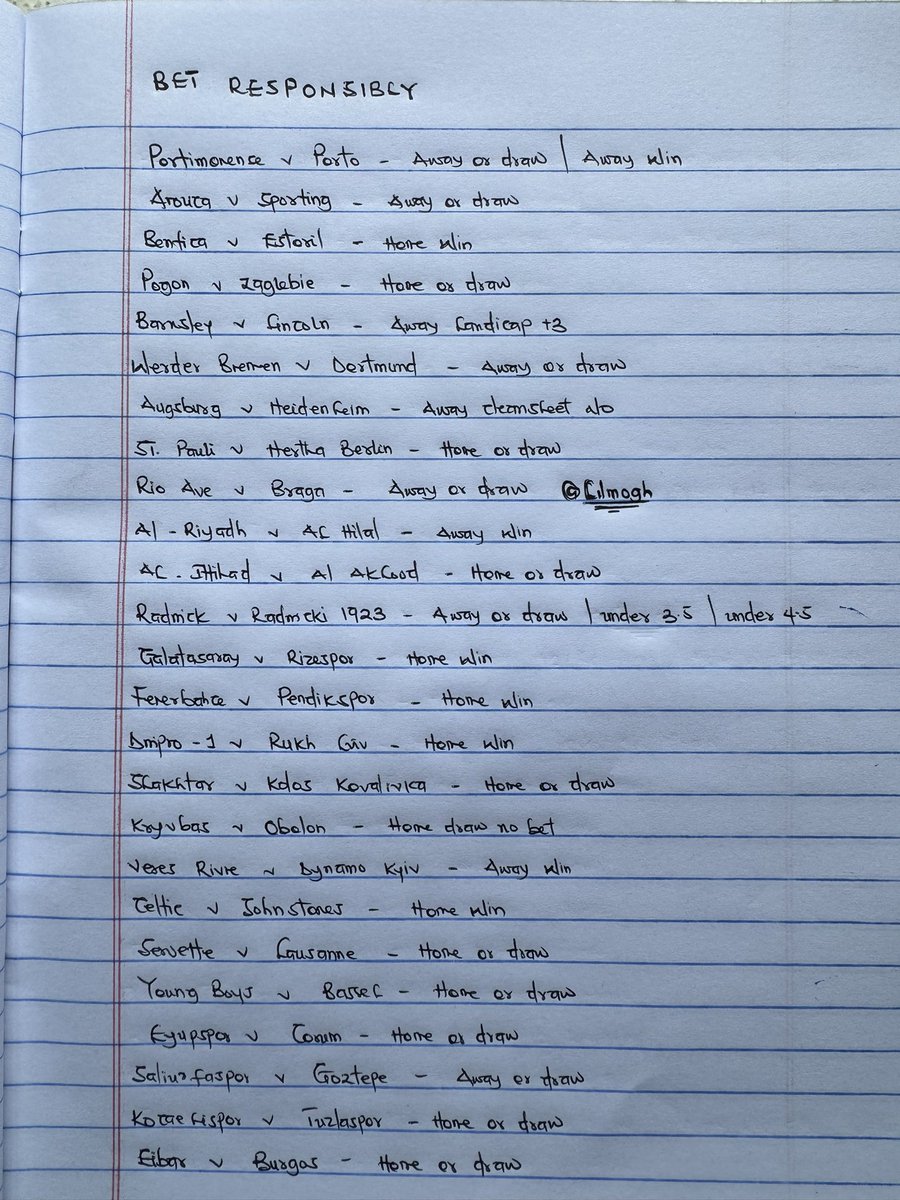 BET RESPONSIBLY
Portimonence v Porto - Away or draw | Away win
Arouca v Sporting - Away or draw
Benfica v Estoril - Home win
Pogon v Zaglebie - Home or draw
Barnsley v Lincoln - Away handicap +3
Werder Bremen v Dortmund - Away or draw
Augsburg v Heidenheim - Away cleansheet no
ST. Pauli v Hertha Berlin - Home or draw
Rio Ave v Braga - Away or draw @Lilmogh
Al - Riyadh v AL Hilal - Away win
AL - Ittihad v Al Akhood - Home or draw
Radnick v Radnicki 1923 - Away or draw | under 3.5 | under 4.5
Galatasaray v Rizespor - Home win
Fenerbahce v Pendikspor - Home win
Dnipro - 1 v Rukh Lviv - Home win
Shakhtar v Kolos Kovalivka - Home or draw
Kryvbas v Obolon - Home draw no bet
Veres Rivne v Dynamo Kyiv - Away win
Celtic v Johnstones - Home win
Servette v Lausanne - Home or draw
Young Boys v Bassel - Home or draw
Eyupspor v Corum - Home or draw
v Goztepe - Away or draw
v Tuzlaspor - Home or draw
Eibar v Burgos - Home or draw